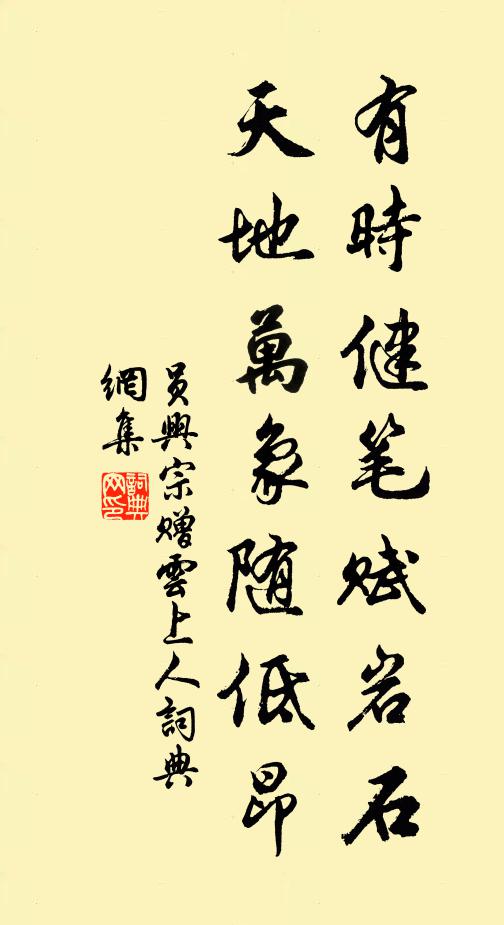 有時健笔賦岩石
天地萬象随低昂
員興宗赠雲上人詞典
網集
詞典
网印